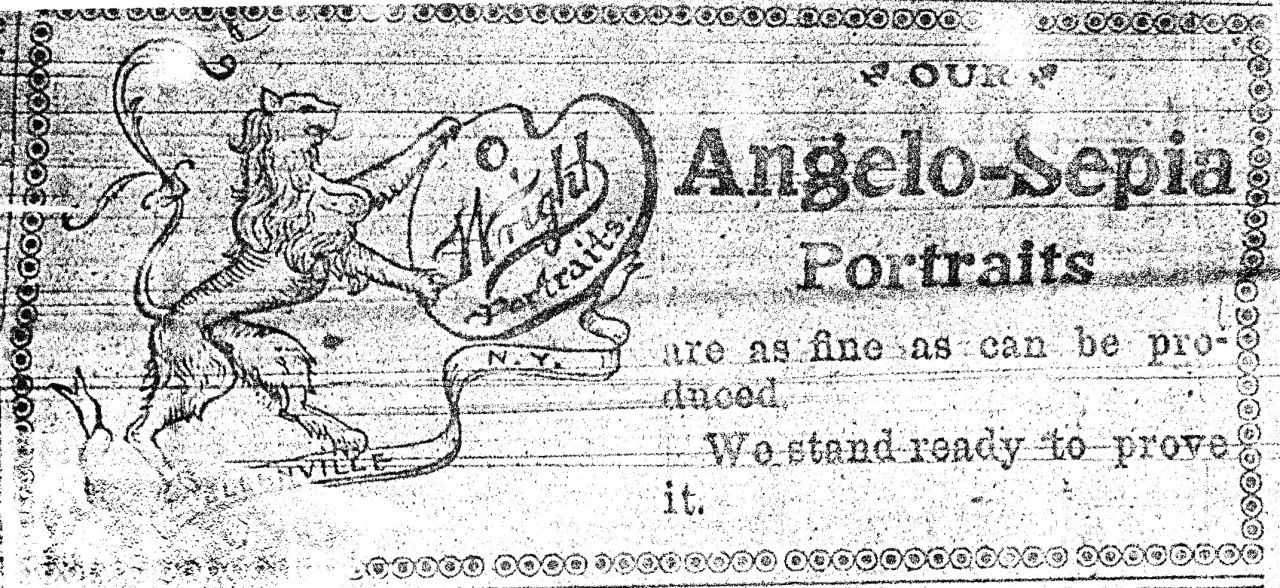 Wright
Portraits.
N.Y.
OUR
Angelo-Sepia
Portraits
are as fine as can be pro-
duced.
We stand ready to prove
it.